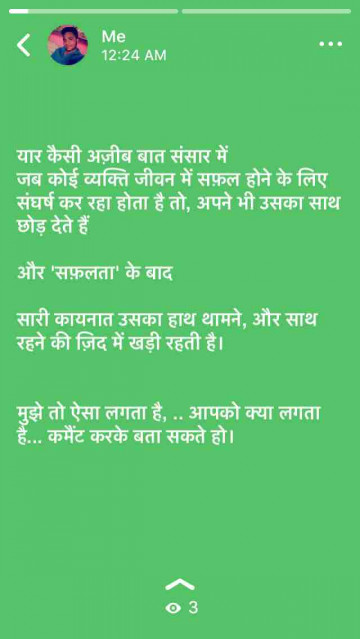 Me
12:24 AM
यार कैसी अज़ीब बात संसार में
जब कोई व्यक्ति जीवन में सफ़ल होने के लिए
संघर्ष कर रहा होता है तो, अपने भी उसका साथ
छोड़ देते हैं
और 'सफ़लता' के बाद
सारी कायनात उसका हाथ थामने, और साथ
रहने की ज़िद में खड़ी रहती है।
मुझे तो ऐसा लगता है, .. आपको क्या लगता
है... कमैंट करके बता सकते हो।
3